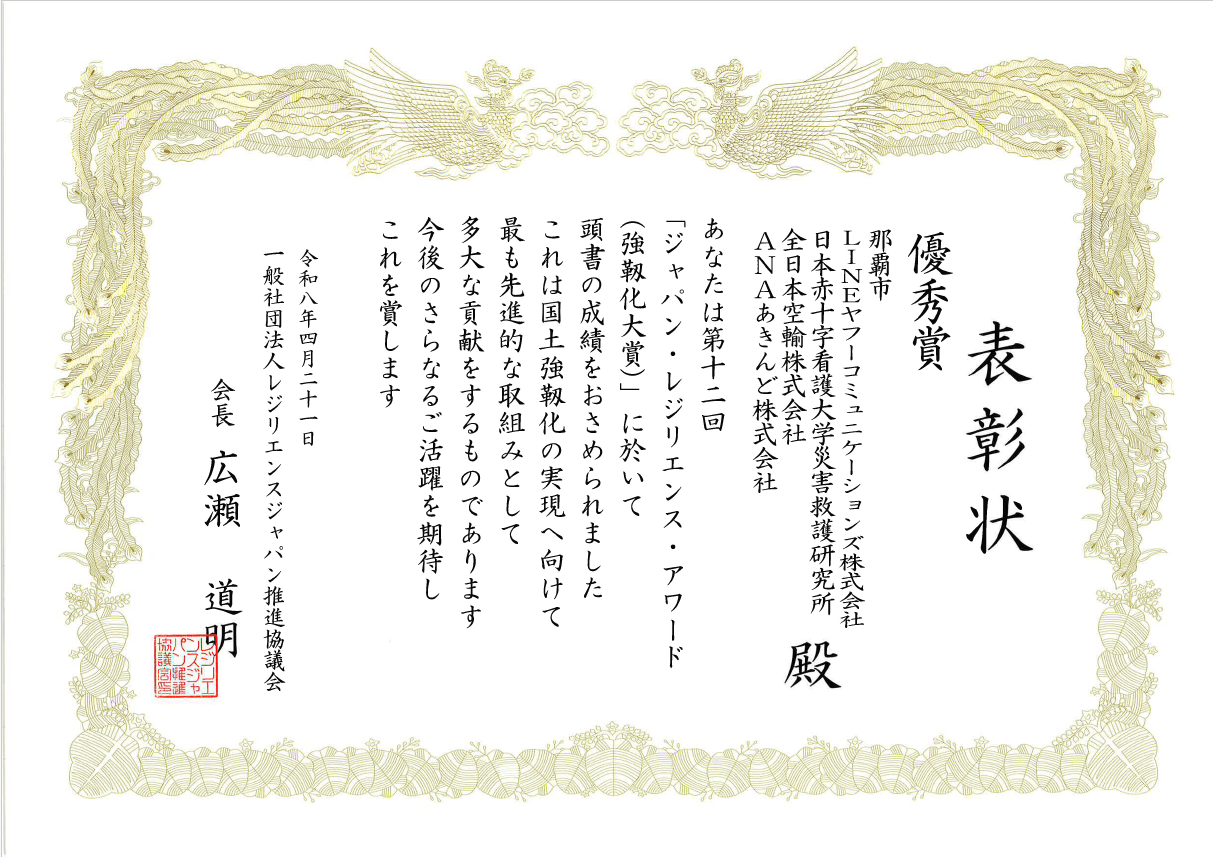 表彰状
優秀賞
那覇市
LINEヤフーコミュニケーションズ株式会社
日本赤十字看護大学災害救護研究所
全日本空輸株式会社
ANAあきんど株式会社
殿
あなたは第十二回
「ジャパン・レジリエンス・アワード
（強靱化大賞）」に於いて
頭書の成績をおさめられました
これは国土強靱化の実現へ向けて
最も先進的な取組みとして
多大な貢献をするものであります
今後のさらなるご活躍を期待し
これを賞します
令和八年四月二十一日
一般社団法人レジリエンスジャパン推進協議会
会長 広瀬 道明
レジリエ
ンスジャ
パン推進